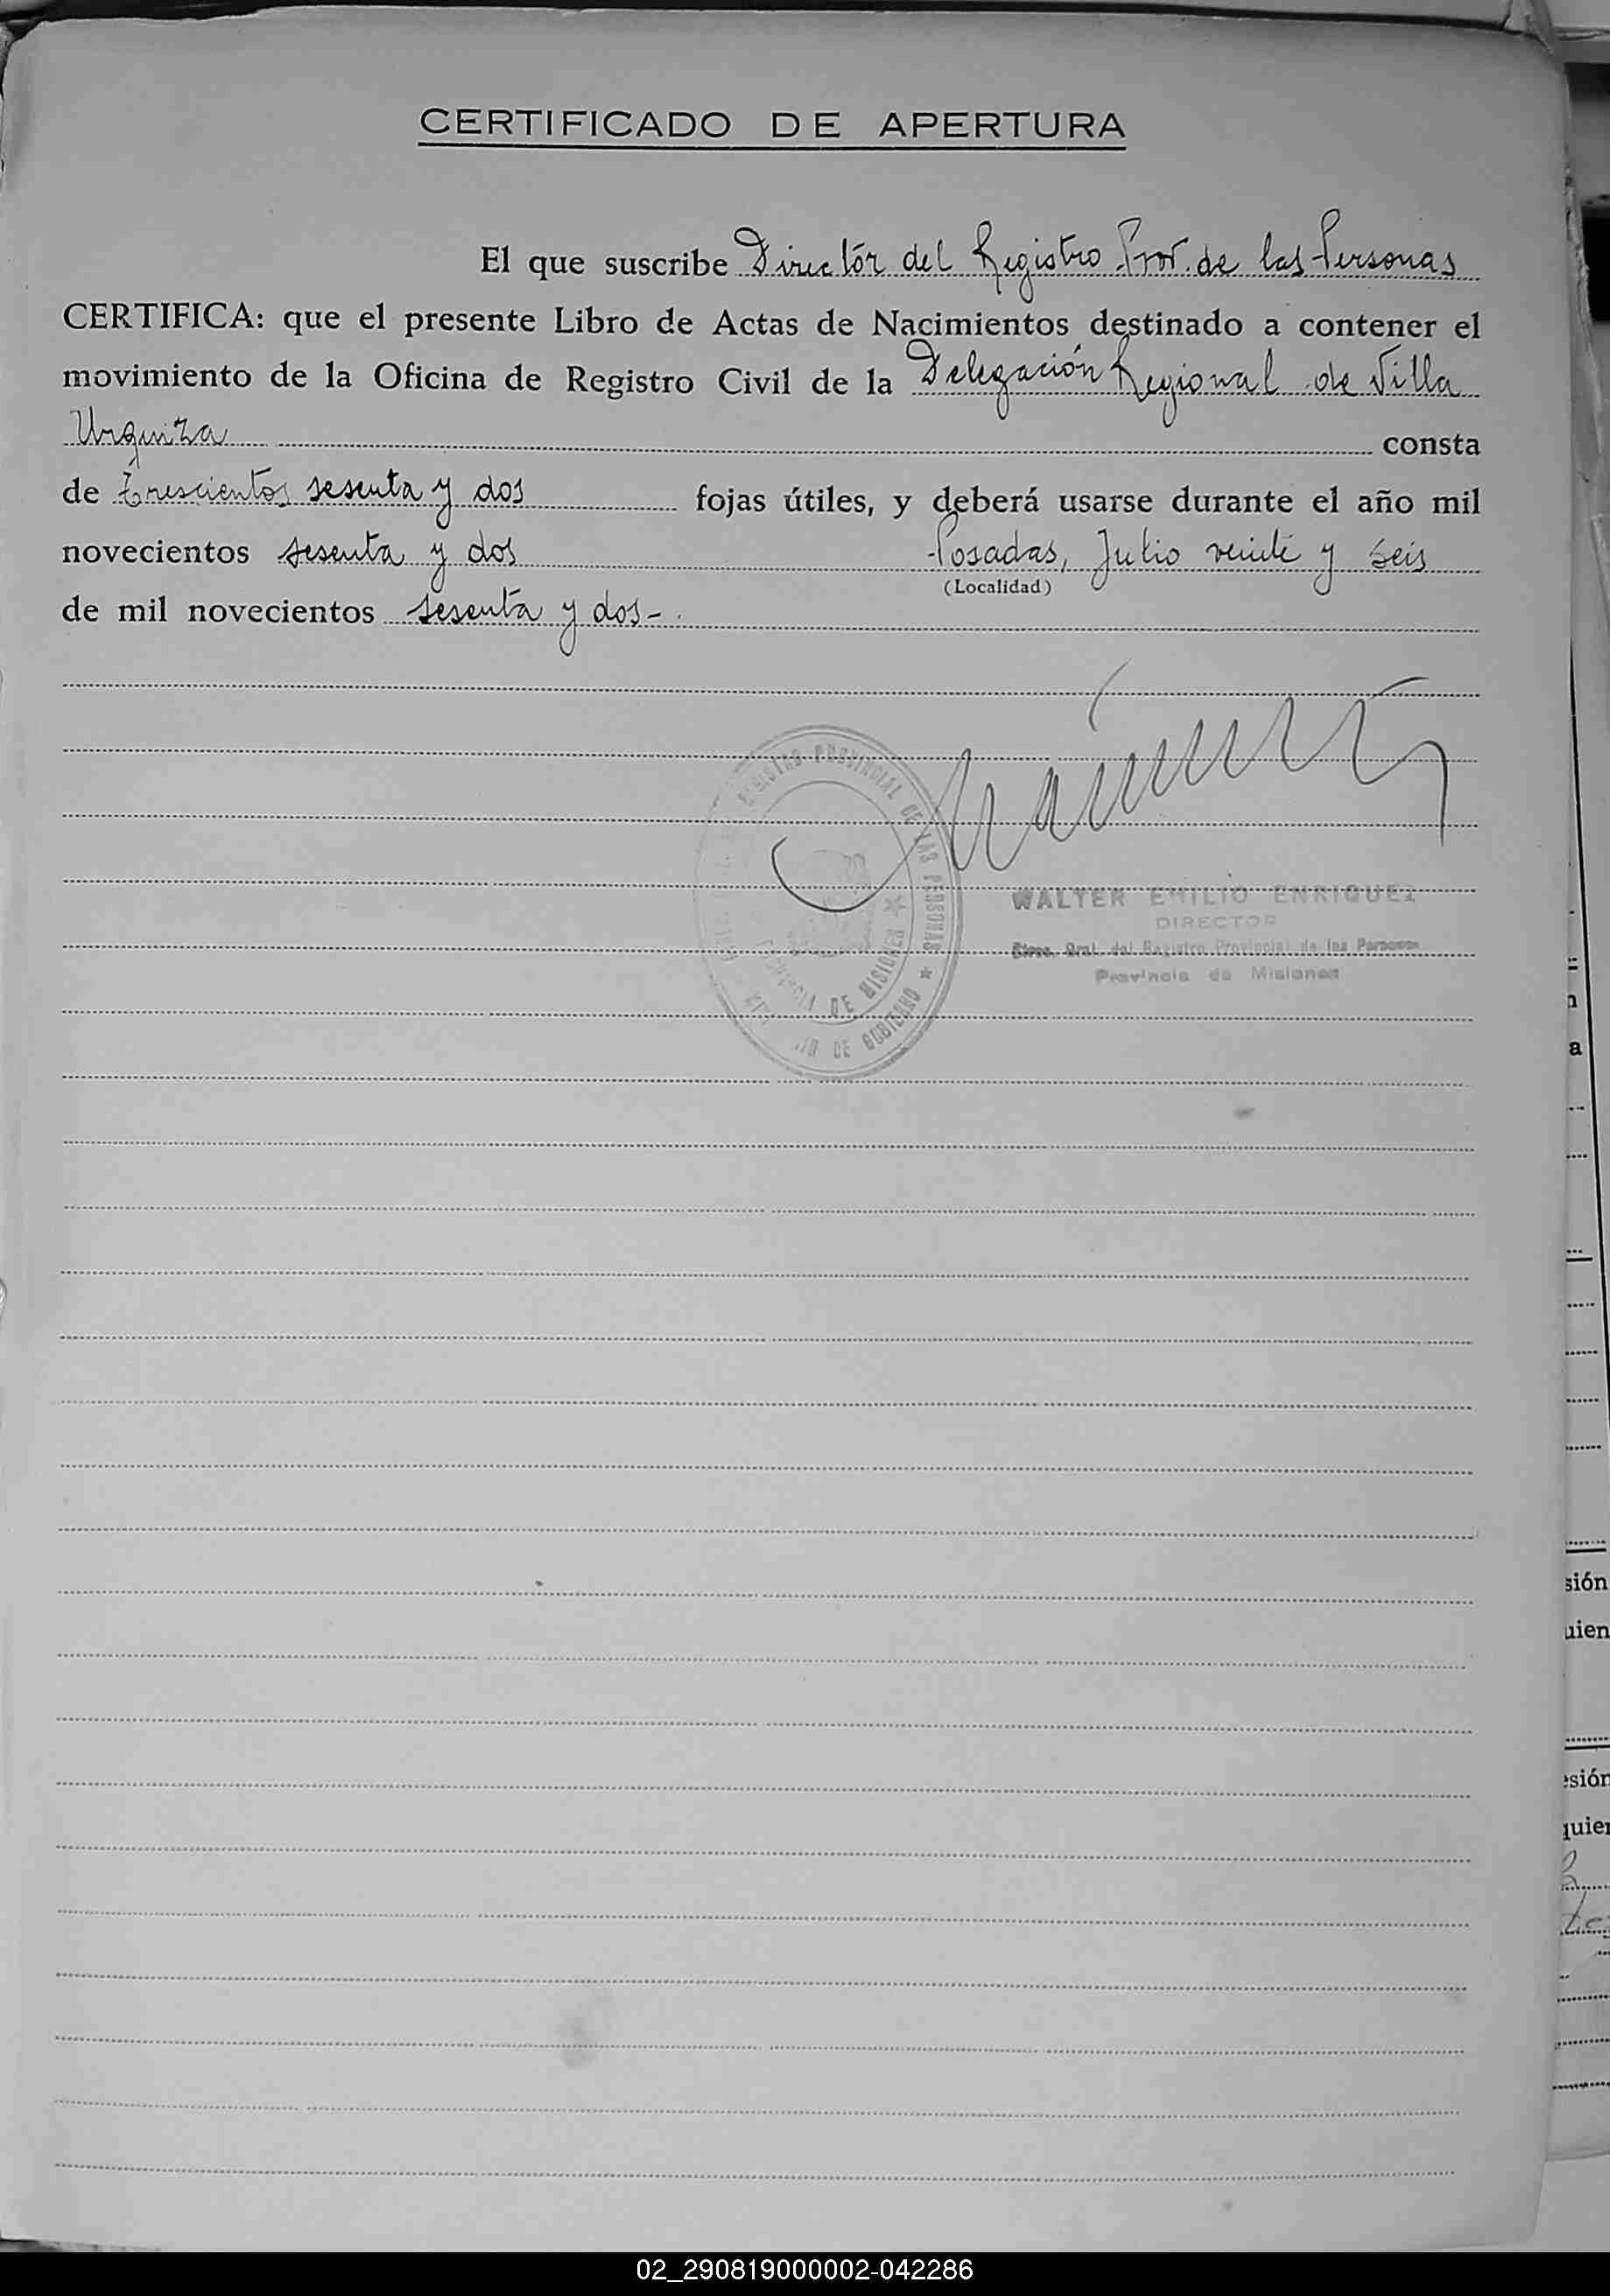 CERTIFICADO DE APERTURA
El que suscribe Director del Registro Prov. de las Personas
CERTIFICA: que el presente Libro de Actas de Nacimientos destinado a contener el
movimiento de la Oficina de Registro Civil de la Delegación Regional de Villa
Urquiza consta
de trescientos sesenta y dos fojas útiles, y deberá usarse durante el año mil
novecientos sesenta y dos Posadas, Julio veinte y seis
(Localidad)
de mil novecientos sesenta y dos-.
REGISTRO PROVINCIAL DE LAS PERSONAS
PROVINCIA DE MISIONES
DE GOBIERNO
WALTER EMILIO ENRIQUEZ
DIRECTOR
Direc. Gral. del Registro Provincial de las Personas
Provincia de Misiones
n
a
sión
uien
esión
quien
02_290819000002-042286